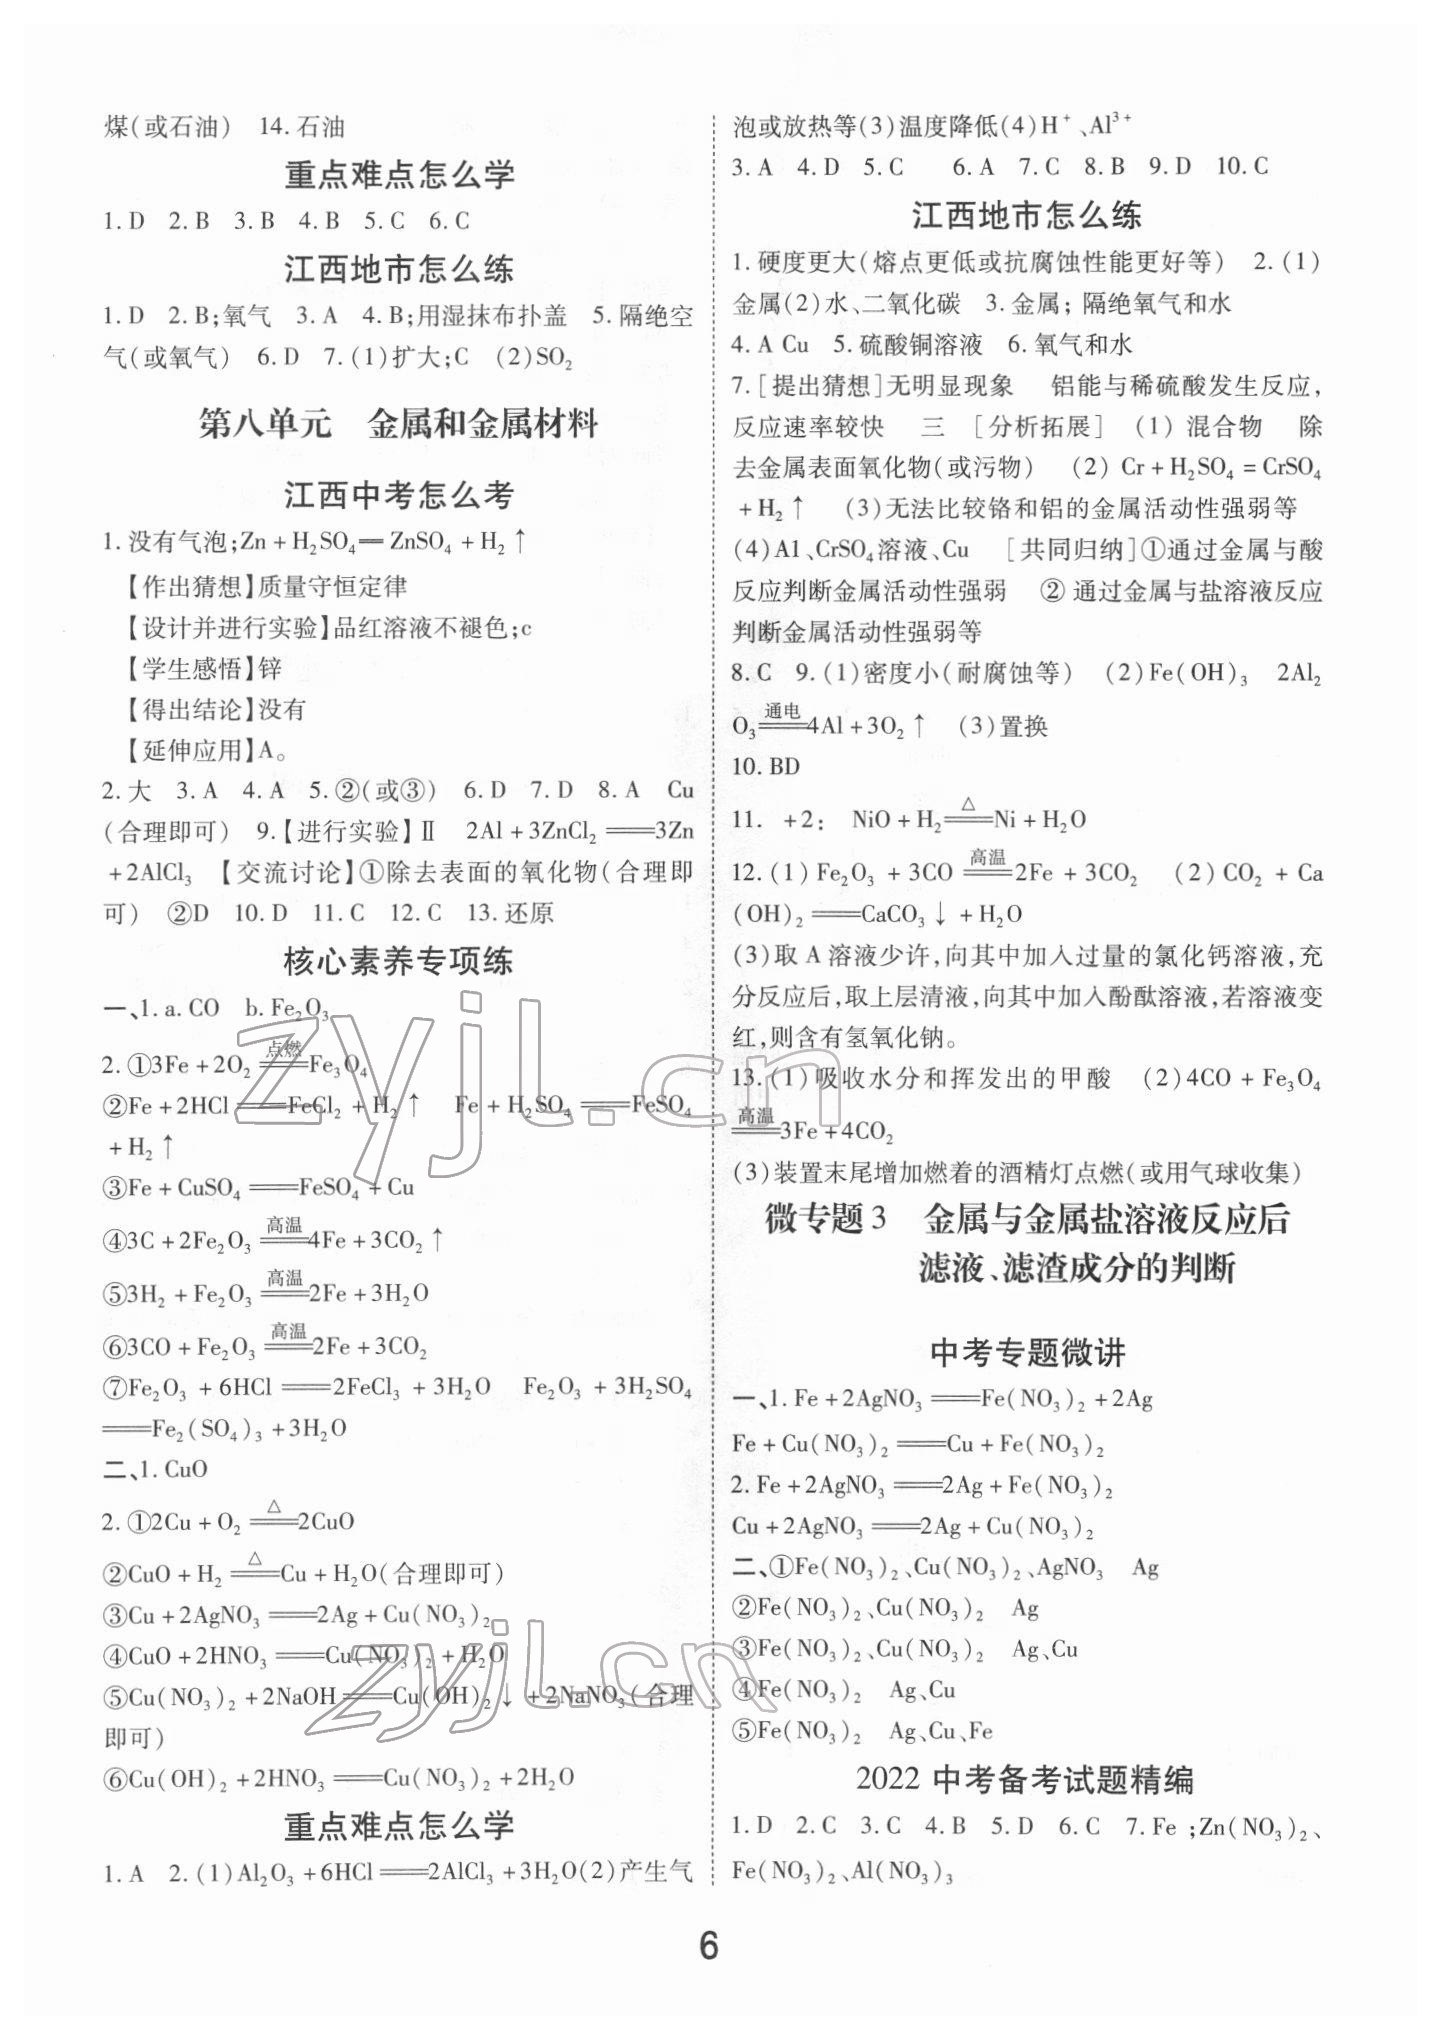 煤(或石油) 14.石油
重点难点怎么学
1.D 2.B 3.B 4.B 5.C 6.C
江西地市怎么练
1.D 2.B;氧气 3.A 4.B;用湿抹布扑盖 5.隔绝空
气(或氧气) 6.D 7.(1)扩大;C (2)SO₂
第八单元 金属和金属材料
江西中考怎么考
1.没有气泡;Zn+H₂SO₄═ZnSO₄+H₂↑
【作出猜想】质量守恒定律
【设计并进行实验】品红溶液不褪色;c
【学生感悟】锌
【得出结论】没有
【延伸应用】A。
2.大 3.A 4.A 5.②(或③) 6.D 7.D 8.A Cu
(合理即可) 9.【进行实验】Ⅱ 2Al+3ZnCl₂══3Zn
+2AlCl₃ 【交流讨论】①除去表面的氧化物(合理即
可) ②D 10.D 11.C 12.C 13.还原
核心素养专项练
一、1.a.CO b.Fe₂O₃
2.①3Fe+2O₂ 点燃══Fe₃O₄
②Fe+2HCl══FeCl₂+H₂↑ Fe+H₂SO₄══FeSO₄
+H₂↑
③Fe+CuSO₄══FeSO₄+Cu
④3C+2Fe₂O₃ 高温══4Fe+3CO₂↑
⑤3H₂+Fe₂O₃ 高温══2Fe+3H₂O
⑥3CO+Fe₂O₃ 高温══2Fe+3CO₂
⑦Fe₂O₃+6HCl══2FeCl₃+3H₂O Fe₂O₃+3H₂SO₄
══Fe₂(SO₄)₃+3H₂O
二、1.CuO
2.①2Cu+O₂ △══2CuO
②CuO+H₂ △══Cu+H₂O(合理即可)
③Cu+2AgNO₃══2Ag+Cu(NO₃)₂
④CuO+2HNO₃══Cu(NO₃)₂+H₂O
⑤Cu(NO₃)₂+2NaOH══Cu(OH)₂↓+2NaNO₃(合理
即可)
⑥Cu(OH)₂+2HNO₃══Cu(NO₃)₂+2H₂O
重点难点怎么学
1.A 2.(1)Al₂O₃+6HCl══2AlCl₃+3H₂O(2)产生气
泡或放热等(3)温度降低(4)H⁺、Al³⁺
3.A 4.D 5.C 6.A 7.C 8.B 9.D 10.C
江西地市怎么练
1.硬度更大(熔点更低或抗腐蚀性能更好等) 2.(1)
金属(2)水、二氧化碳 3.金属; 隔绝氧气和水
4.A Cu 5.硫酸铜溶液 6.氧气和水
7.[提出猜想]无明显现象 铝能与稀硫酸发生反应,
反应速率较快 三 [分析拓展] (1)混合物 除
去金属表面氧化物(或污物) (2)Cr+H₂SO₄=CrSO₄
+H₂↑ (3)无法比较铬和铝的金属活动性强弱等
(4)A1、CrSO₄溶液、Cu [共同归纳]①通过金属与酸
反应判断金属活动性强弱 ②通过金属与盐溶液反应
判断金属活动性强弱等
8.C 9.(1)密度小(耐腐蚀等) (2)Fe(OH)₃ 2Al₂
O₃ 通电══4Al+3O₂↑ (3)置换
10.BD
11. +2: NiO+H₂ △══Ni+H₂O
12.(1)Fe₂O₃+3CO 高温══2Fe+3CO₂ (2)CO₂+Ca
(OH)₂══CaCO₃↓+H₂O
(3)取A溶液少许,向其中加入过量的氯化钙溶液,充
分反应后,取上层清液,向其中加入酚酞溶液,若溶液变
红,则含有氢氧化钠。
13.(1)吸收水分和挥发出的甲酸 (2)4CO+Fe₃O₄
高温══3Fe+4CO₂
(3)装置末尾增加燃着的酒精灯点燃(或用气球收集)
微专题3 金属与金属盐溶液反应后
滤液、滤渣成分的判断
中考专题微讲
一、1.Fe+2AgNO₃══Fe(NO₃)₂+2Ag
Fe+Cu(NO₃)₂══Cu+Fe(NO₃)₂
2.Fe+2AgNO₃══2Ag+Fe(NO₃)₂
Cu+2AgNO₃══2Ag+Cu(NO₃)₂
二、①Fe(NO₃)₂、Cu(NO₃)₂、AgNO₃ Ag
②Fe(NO₃)₂、Cu(NO₃)₂ Ag
③Fe(NO₃)₂、Cu(NO₃)₂ Ag、Cu
④Fe(NO₃)₂ Ag、Cu
⑤Fe(NO₃)₂ Ag、Cu、Fe
2022中考备考试题精编
1.D 2.C 3.C 4.B 5.D 6.C 7.Fe;Zn(NO₃)₂、
Fe(NO₃)₂、Al(NO₃)₃
6
zyjl.cn
zyjl.cn